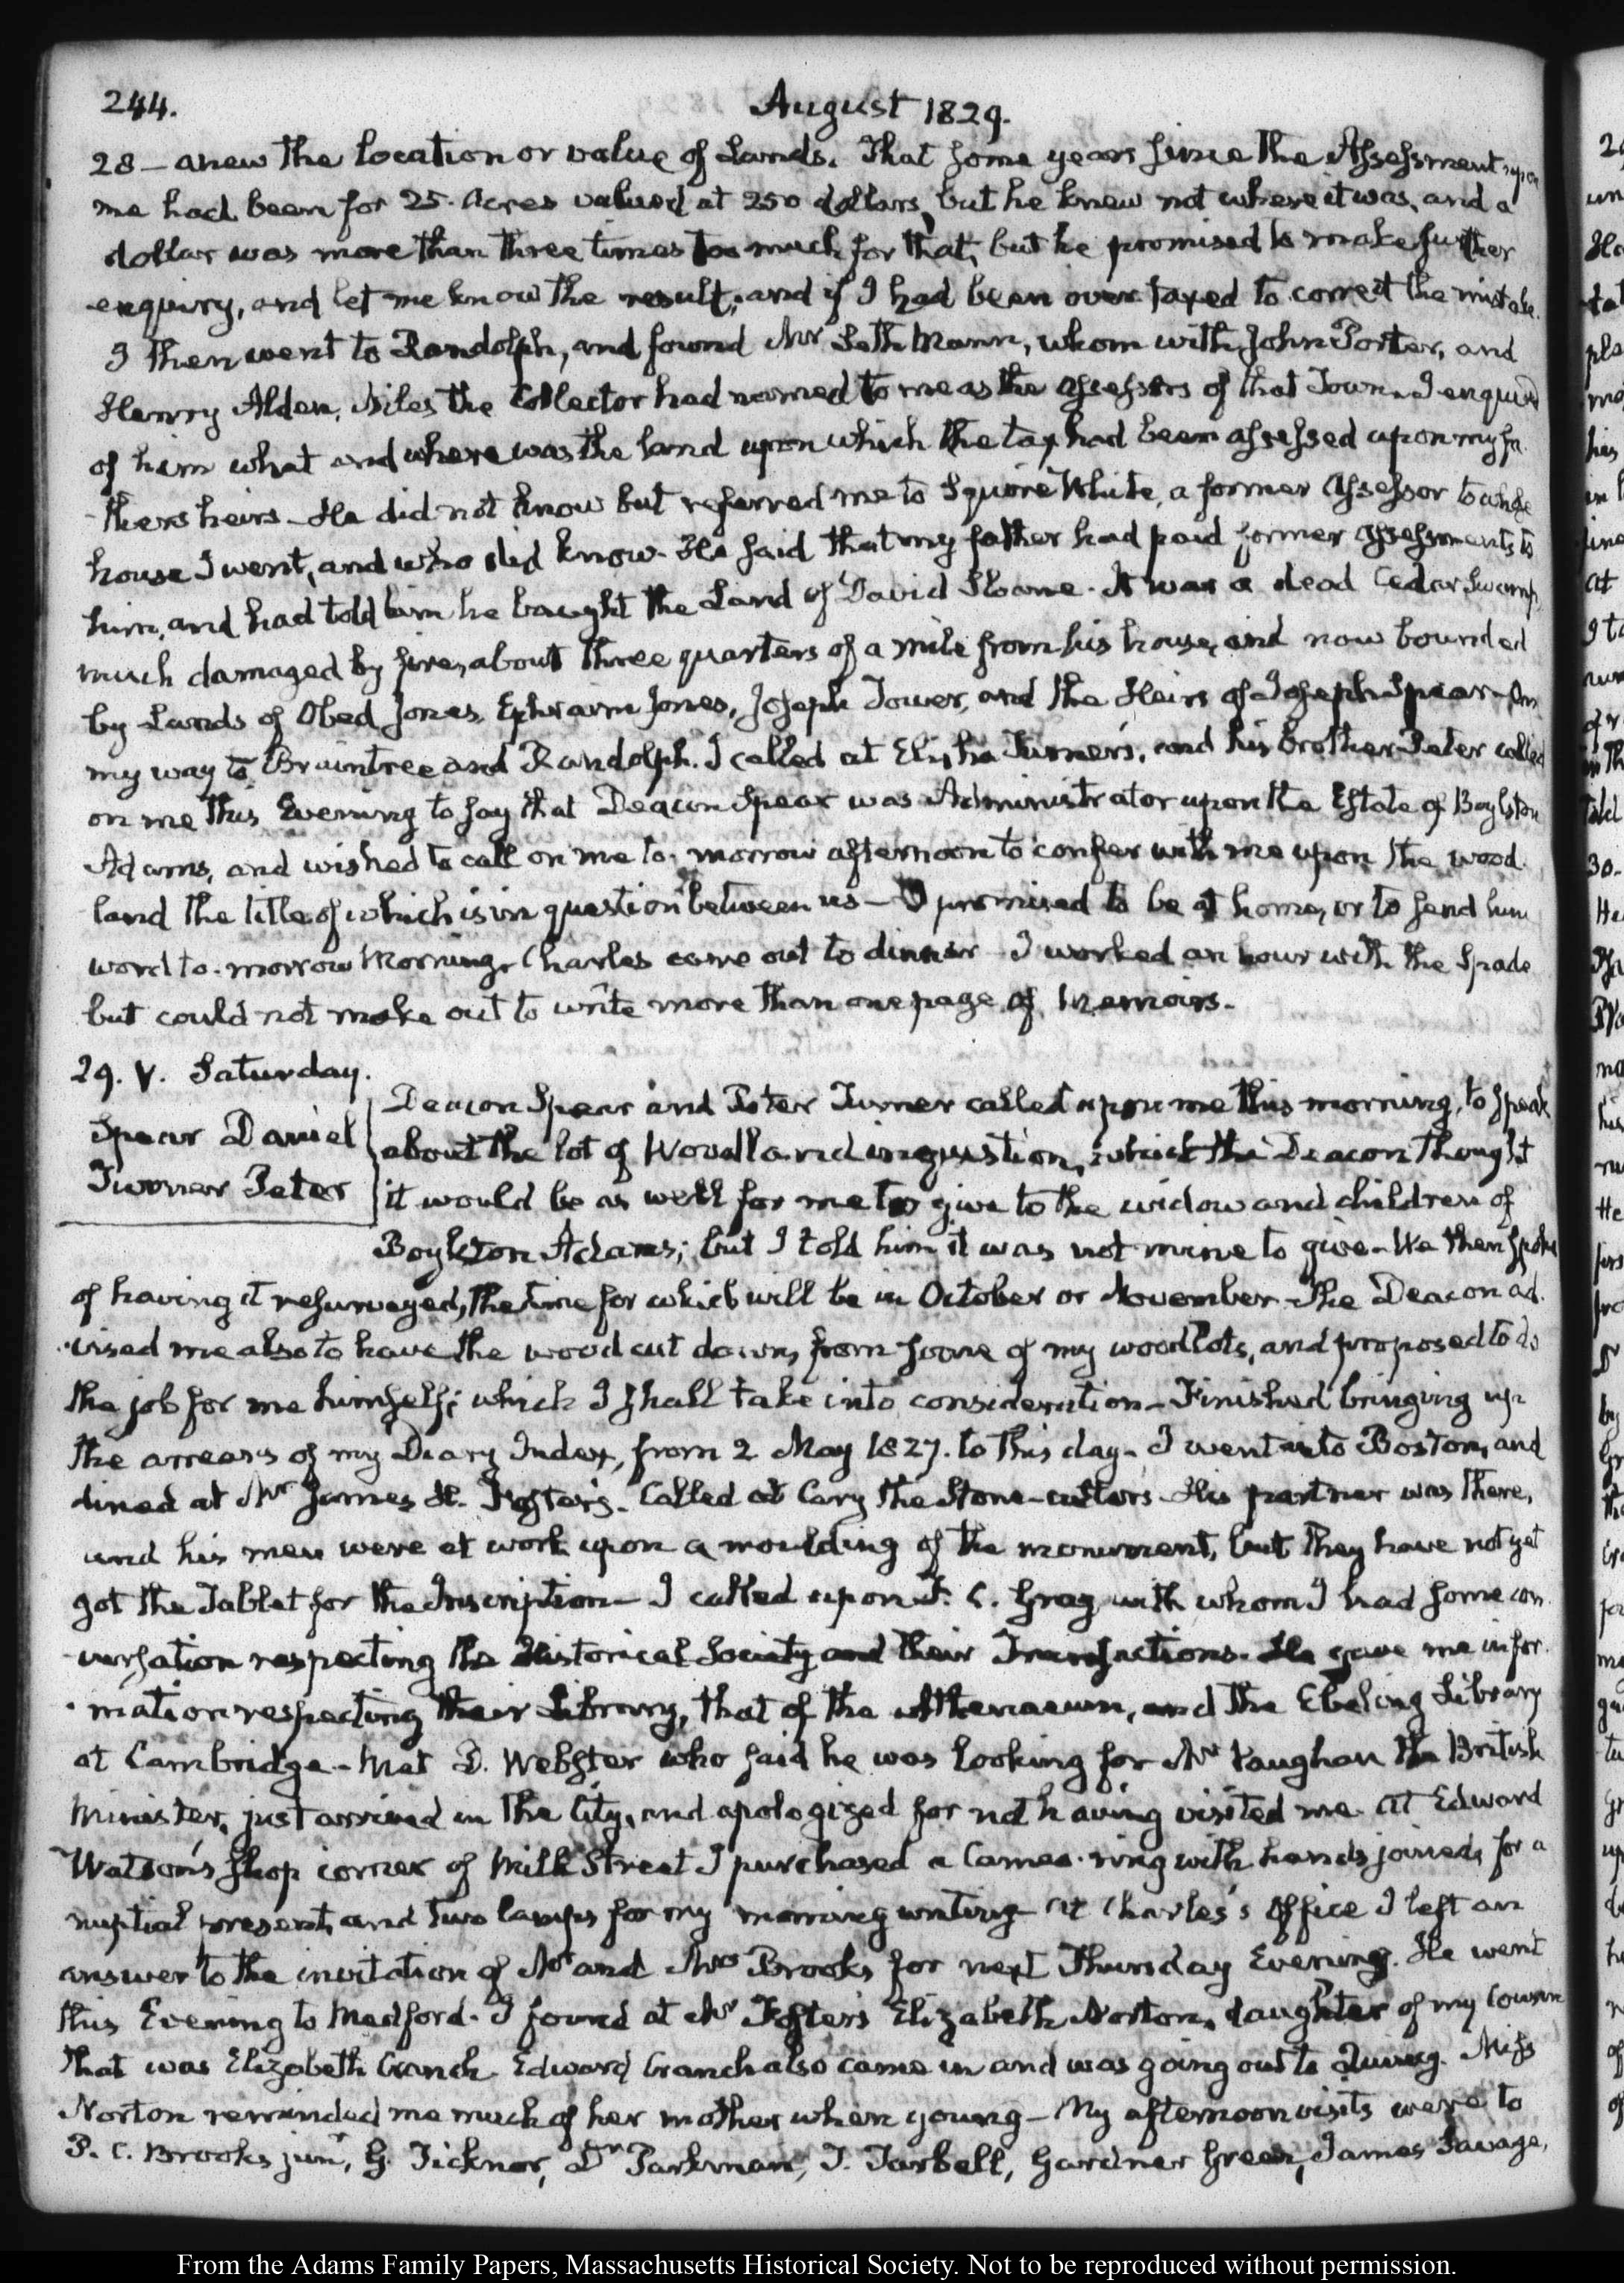 244.
August 1829.
28 — anew the location or value of Lands. That some years since the Assessment upon
me had been for 25. Acres valued at 250 dollars, but he knew not where it was, and a
dollar was more than three times too much for that, but he promised to make further
enquiry, and let me know the result, and if I had been over taxed to correct the mistake.
I then went to Randolph, and found Mr Seth Mann, whom with John Porter, and
Henry Alden, Niles the Collector had named to me as the assessors of that Town. I enquired
of him what and where was the land upon which the tax had been assessed upon my fa-
thers heirs - He did not know but referred me to Squire White, a former Assessor to whose
house I went, and who did know. He said that my father had paid former assessments to
him, and had told him he bought the Land of David Sloane. It was a dead Cedar Swamp,
much damaged by fire, about three quarters of a mile from his house, and now bounded
by Lands of Obed Jones, Ephraim Jones, Joseph Tower, and the Heirs of Joseph Spear - On
my way to Braintree and Randolph. I called at Elisha Turner's, and his brother Peter called
on me this Evening to say that Deacon Spear was Administrator upon the Estate of Boylston
Adams, and wished to call on me to-morrow afternoon to confer with me upon the wood-
land the title of which is in question between us — I promised to be at home, or to send him
word to-morrow Morning. Charles came out to dinner - I worked an hour with the Spade
but could not make out to write more than one page of Memoirs.
29. V. Saturday.
Spear Daniel
Turner Peter
Deacon Spear and Peter Turner called upon me this morning, to speak
about the lot of Woodland in question, which the Deacon thought
it would be as well for me to give to the widow and children of
Boylston Adams; but I told him it was not mine to give - We then spoke
of having it resurveyed, the time for which will be in October or November - The Deacon ad-
vised me also to have the wood cut down, from some of my woodlots, and proposed to do
the job for me himself; which I shall take into consideration - Finished bringing up
the arrears of my Diary Index, from 2 May 1827. to this day - I went into Boston, and
dined at Mr James H. Foster's. Called at Cary the Stone-cutters - His partner was there,
and his men were at work upon a moulding of the monument, but they have not yet
got the Tablet for the Inscription - I called upon F. C. Gray with whom I had some con-
versation respecting the Historical Society and their Transactions. He gave me infor-
mation respecting their Library, that of the Athenaeum, and the Ebeling Library
at Cambridge - Met D. Webster who said he was looking for Mr Vaughan the British
Minister, just arrived in the City, and apologized for not having visited me. At Edward
Watson's shop corner of Milk Street I purchased a Cameo-ring with hands joined, for a
nuptial present, and two lamps for my morning writing - At Charles's Office I left an
answer to the invitation of Mr and Mrs Brooks for next Thursday Evening. He went
this Evening to Medford. I found at Mr Foster's Elizabeth Norton, daughter of my Cousin
that was Elizabeth Cranch - Edward Cranch also came in and was going out to Quincy. Miss
Norton reminded me much of her mother when young - My afternoon visits were to
P. C. Brooks junr, G. Ticknor, Dr Parkman, T. Tarbell, Gardner Green, James Savage,
From the Adams Family Papers, Massachusetts Historical Society. Not to be reproduced without permission.